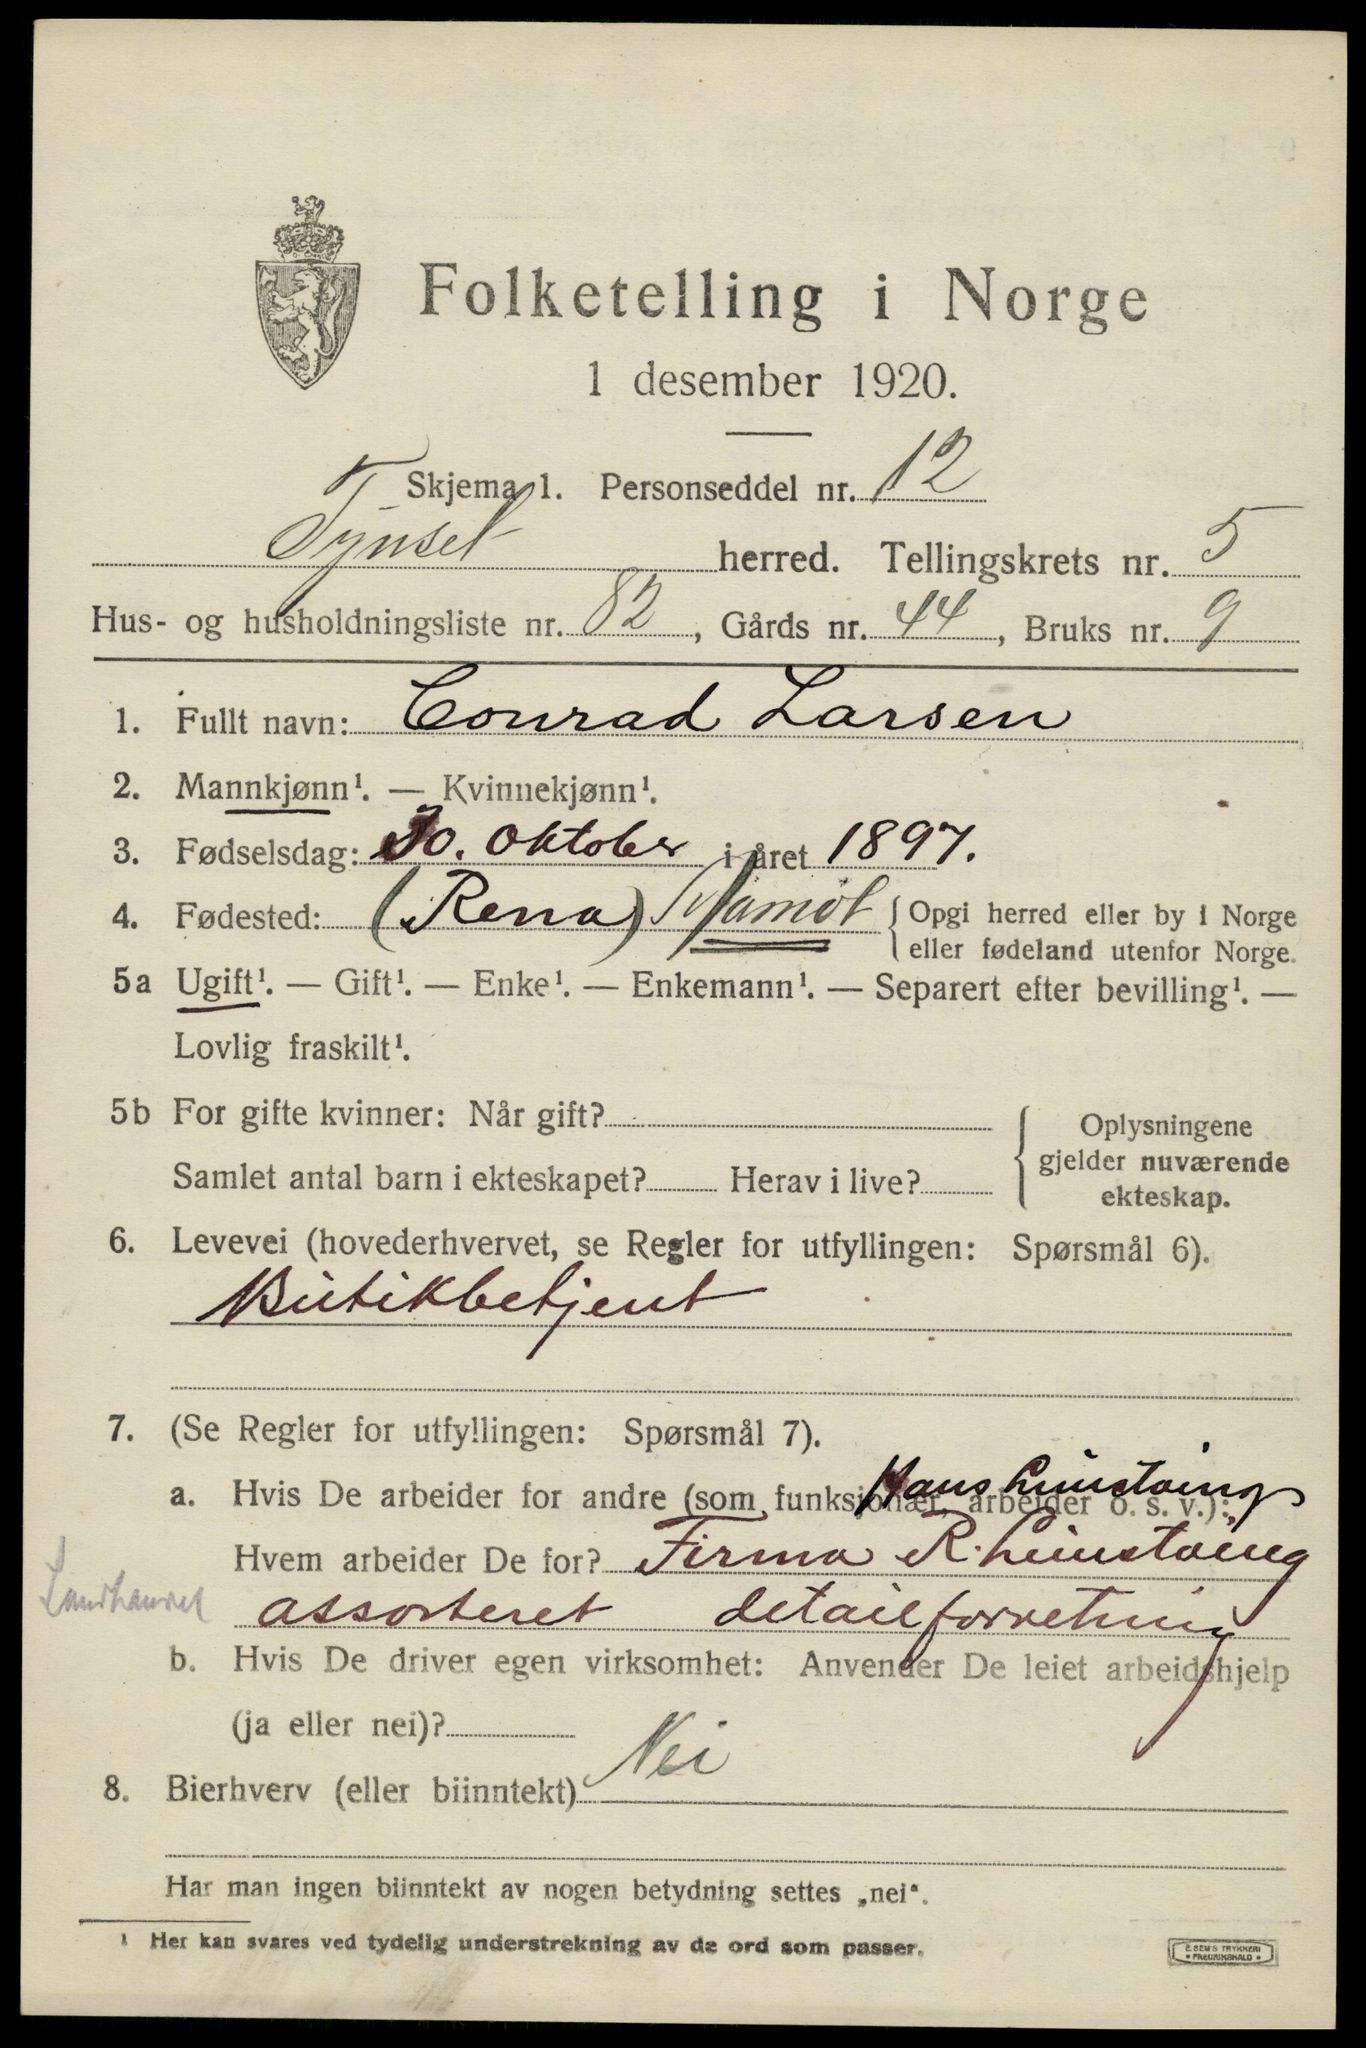 Folketelling i Norge
1 desember 1920.
Skjema 1. Personseddel nr. 12
Tynset herred. Tellingskrets nr. 5
Hus- og husholdningsliste nr. 82, Gårds nr. 44, Bruks nr. 9
1. Fullt navn: Conrad Larsen
2. Mannkjønn¹. — Kvinnekjønn¹.
3. Fødselsdag: 30. Oktober i året 1897.
4. Fødested: (Rena) Åmot { Opgi herred eller by i Norge
eller fødeland utenfor Norge.
5a Ugift¹. — Gift¹. — Enke¹. — Enkemann¹. — Separert efter bevilling¹. —
Lovlig fraskilt¹.
5b For gifte kvinner: Når gift?
Samlet antal barn i ekteskapet? Herav i live?
Oplysningene
gjelder nuværende
ekteskap.
6. Levevei (hovederhvervet, se Regler for utfyllingen: Spørsmål 6).
Butikbetjent
7. (Se Regler for utfyllingen: Spørsmål 7).
Hans
a. Hvis De arbeider for andre (som funksjonær, arbeider o. s. v.):
Hvem arbeider De for? Firma R.
Landhandel assorteret detailforretning
b. Hvis De driver egen virksomhet: Anvender De leiet arbeidshjelp
(ja eller nei)?
8. Bierhverv (eller biinntekt) Nei
Har man ingen biinntekt av nogen betydning settes „nei“.
¹ Her kan svares ved tydelig understrekning av de ord som passer.
E. SEM'S TRYKKERI
• FREDRIKSHALD •